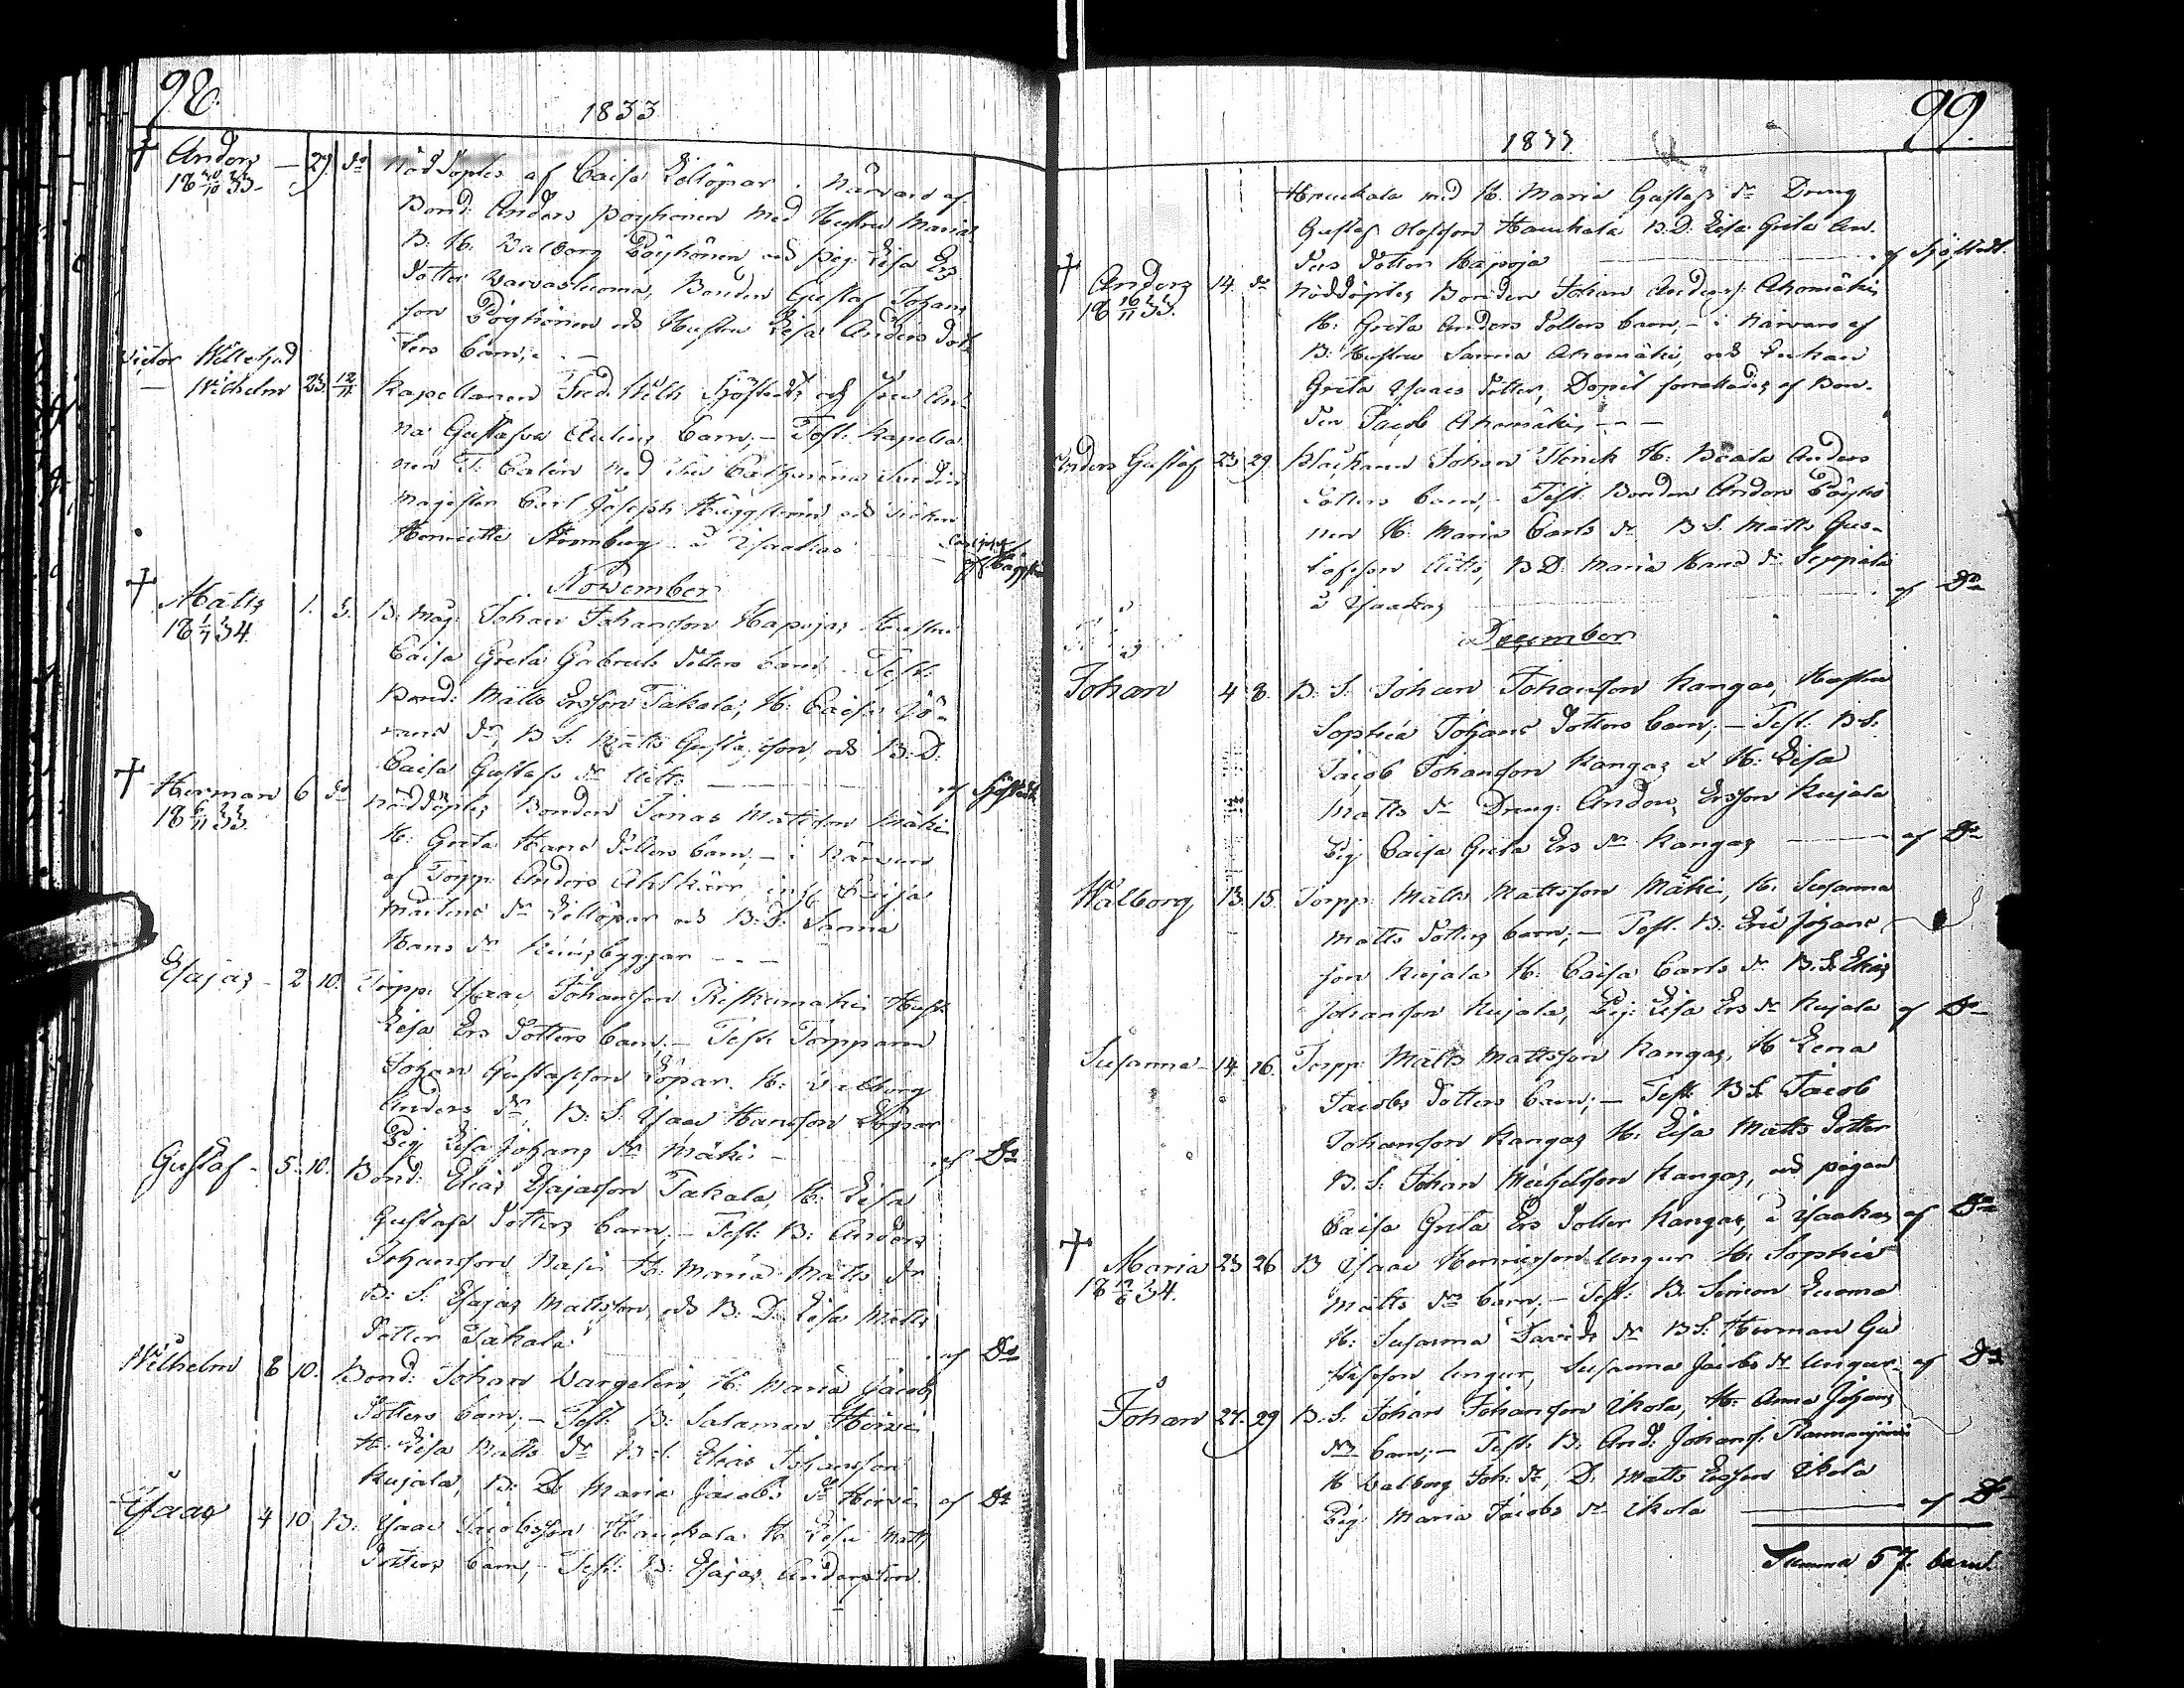 98.
1833
† Anders — 29 do Nöddöptes af Caisa Lillöpar i närvaro af
18 20/10 33. Bond: Anders Pöyhönen med Hustru Maria
B: H: Walborg Pöyhönen och Pig: Lisa Ers
dotter Varvastuoma, Bonden Gustaf Johans
son Pöyhönen och Hustru Lisa Anders dot
ters barn, —
Victor
Wilhelm 23 12/11 Kapellanen Fred: Wilh: Sjöstedts och Fru An
na Gustafva Aulins barn; — Test: Kapella
nen J: Calén med Fru Catharina
Magister Carl Joseph Häggström och
Henriette Strömberg å Ysaakas
November
† Matts 1. 5. B: Måg: Johan Johansson Kapojas Hustru
18 1/7 34. Caisa Greta Gabriels dotters barn — Test:
Bond: Matts Ersson Takala, H: Caisa Jö-
rans dr, B S: Matts Gustafsson, och B: D:
Caisa Gustafs dr — af Sjöstedt
† Herman 6 do Nöddöptes Bonden Jonas Mattsson Mäki
18 6/11 33. H: Greta Hans dotters barn, — i närvaro
af Torpp: Anders Ahlskärr, Caisa
Mårtens dr Lillöpar och B: D: Sanna
Hans dr — —
Esajas — 2 10. Torpp: Ysaac Johansson Riskumäki Hust:
Lisa Ers dotters barn; — Test: Torpparen
Johan Gustafsson Löpar. H: Valborg
Anders dr, B: S: Ysaac Hansson Löpar
Pig Lisa Johans dr Mäki — af Do
Gustaf — 5. 10. Bond: Elias Esajasson Takala, H: Lisa
Gustafs dotters barn, — Test: B: Anders
Johansson Nasi H: Maria Matts dr
B: S: Esajas Mattsson, och B: D: Lisa Matts
dotter Takala — af Do
Wilhelm 8 10. Bond: Johan Vargelin, H: Maria Jacobs
dotters barn; — Test: B: Salamon Hirvi
H: Lisa Matts dr B: S: Elias Johansson
Kujala, B: D: Maria Jacobs dr Hirvi af Do
Ysaac 4 10 B: Ysaac Jacobsson Haukkala H: Lisa Matts
dotters barn, — Test: B: Esajas Andersson
99.
1833
Haukkala med H: Maria Gustafs dr Dreng
Gustaf Olofsson Haukkala B: D: Lisa Greta An-
ders dotter Kapoja — af Sjöstedt.
† Anders 14. do Nöddöptes Bonden Johan Anderss: Ahomäkis
18 16/11 33. H: Greta Anders dotters barn, — i närvaro af
B: Hustru Sanna Ahomäki, och Enkan
Greta Ysaacs dotter, Dopet förrättades af Bon-
den Jacob Ahomäki, — —
Anders Gustaf 23 29. Johan Henrik H: Beata Anders
dotters barn, — Test: Bonden Anders Pöyhö
nen H: Maria Carls dr B S: Matts Gus-
tafsson, B D: Maria Hans dr Seppälä
å Ysaakas — af Do
December
Johan 4 8. B: S: Johan Johansson Kangas, Hustru
Sophia Johans dotters barn; — Test: B S:
Jacob Johansson Kangas & H: Lisa
Matts dr Dreng: Anders Ersson Kujala
Pig Caisa Greta Ers dr Kangas — af Do
Walborg 13. 15. Torpp: Matts Mattsson Mäki, H: Susanna
Matts dotters barn; — Test: B: Eric Johans
son Kujala H: Caisa Carls dr B: S: Elias
Johansson Kujala, Pig: Lisa Ers dr Kujala af Do
Susanna — 14. 16. Torpp: Matts Mattsson Kangas, H Lena
Jacobs dotters barn; — Test: B S: Jacob
Johansson Kangas H: Lisa Matts dotter
B. S: Johan Michelsson Kangas, och pigan
Caisa Greta Ers dotter Kangas, å Ysaakas af Do
† Maria 23 26 B Ysaac Henricsson Ungur H: Sophia
18 12/6 34. Matts dr barn; — Test: B: Simon Luoma
H: Susanna Davids dr B S: Herman Gu
stafsson Ungur, Susanna Jacobs dr Ungur af Do
Johan 27. 29 B. S. Johan Johansson Ikola, H: Anna Johans
dr barn; — Test: B. And: Johanss:
H Valborg Joh: dr, D: Matts Ersson Ikola
Pig Maria Jacobs dr Ikola — af Do
Summa 57 barn.